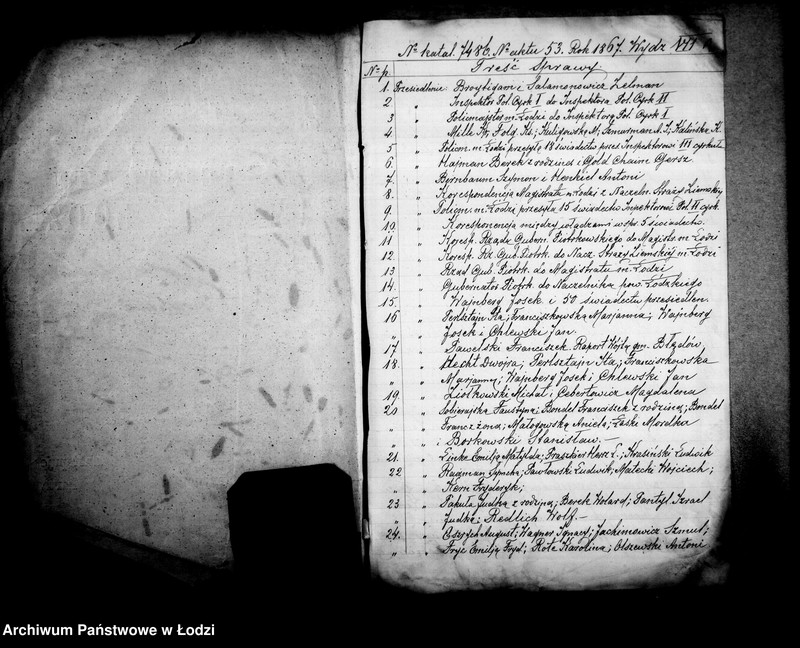 № katal. 7486. № aktu 53. Rok 1867. Wydz VII
№ p. Treść Sprawy
1. Przesiedlenie: Broytigam i Salamonowicz Zelman
2 " Inspektor Pol. Cyrk I do Inspektora Pol. Cyrk II
3 " Policmajster m. Łodzi do Inspektora Pol. Cyrk I
4 " Mille Kuligowska Kalińska K.
5 " Policm. m. Łodzi przesyła 18 świadectw przes. Inspektorowi III cyrkułu
6. " Hajman Berek z rodziną i Gold Chaim Gersz.
7. " Birnbaum Szymon i Henkiel Antoni
8. " Korespondencja Magistratu m. Łodzi z Naczeln. Straży Ziemskiej
9. " Policm. m. Łodzi przesyła 15 świadectw Inspektorowi Pol. II cyrk.
10. " Korespondencja między władzami w spr. 5 świadectw.
11 " Koresp. Rządu Gubern. Piotrkowskiego do Magistr. m. Łodzi
12. " Koresp. Rz. Gub. Piotrk. do Nacz. Straży Ziemskiej m. Łodzi
13 " Rząd Gub. Piotrk. do Magistratu m. Łodzi
14. " Gubernator Piotrk. do Naczelnika pow. Łódzkiego
15. " Wajnberg Josek i 50 świadectw przesiedlen.
16 " Perlsztajn Ita; Franciszkowska Marjanna; Wajnberg
" " Josek i Chlewski Jan.
17 " Pawelski Franciszek. Raport Wójta gm. Błędów,
18. " Hecht Dwojra; Perlsztajn Ita; Franciszkowska
" " Marjanna; Wajnberg Josek i Chlewski Jan
19. " Ziółkowski Michał i Cebertowicz Magdalena
20 " Sobierajska Faustyna; Bondel Franciszek z rodziną; Bondel
" " Franc z żoną; Małagowska Aniela; Łaski Mordka
" " i Borkowski Stanisław. —
21. " Linke Emilja Matylda; Fraszkier Hersz L.; Krasiński Ludwik
22 " Ragman Symcha; Pawłowski Ludwik; Małecki Wojciech;
" " Kern Fryderyk;
23 " Pakuła Judka z rodziną; Berek Wolard; Pantyl Izrael
" " Judka; Redlich Wolf. —
24. " August; Wagner Ignacy; Jachimowicz Szmul;
" " Frye Emilja Fryd; Rote Karolina; Olszewski Antoni
Archiwum Państwowe w Łodzi